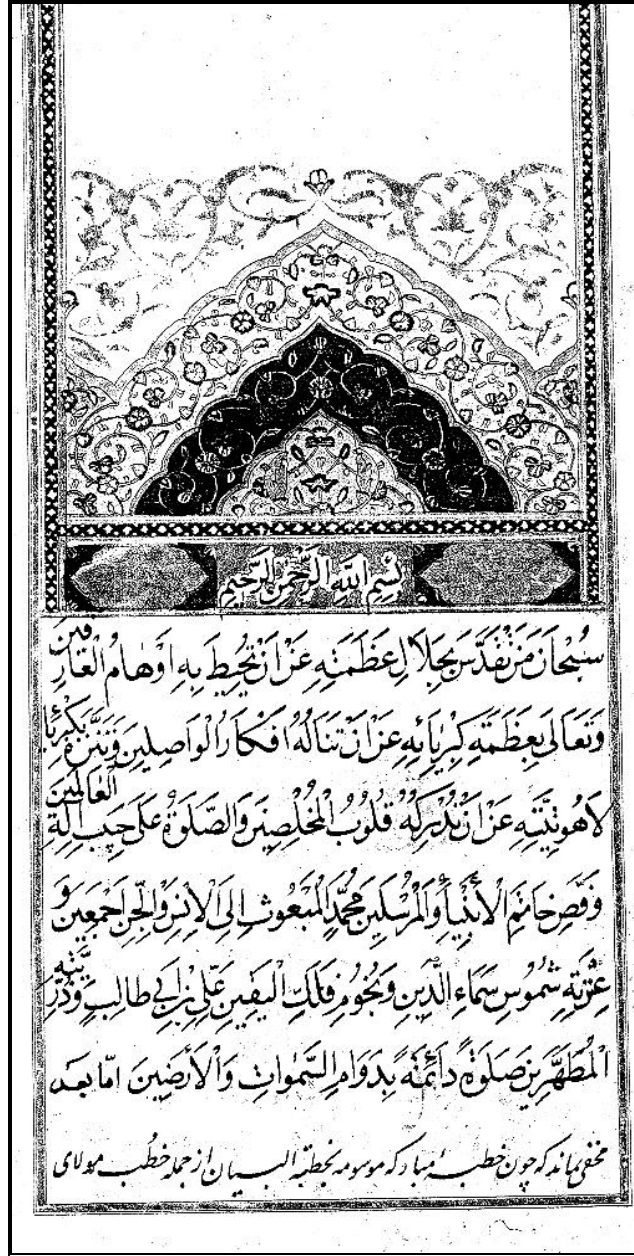 بِسْمِ اللّٰهِ الرَّحْمٰنِ الرَّحِيمِ
سُبْحَانَ مَنْ تَقَدَّسَ بِجَلَالِ عَظَمَتِهِ عَنْ اَنْ تُحِيطَ بِهِ اَوْهَامُ الْعَارِفِينَ
وَتَعَالَى بِعَظَمَةِ كِبْرِيَائِهِ عَنْ اَنْ تَنَالَهُ اَفْكَارُ الْوَاصِلِينَ وَتَنَزَّهَ بِكِبْرِيَاءِ
لَاهُوتِيَّتِهِ عَنْ اَنْ تُدْرِكَهُ قُلُوبُ الْمُخْلِصِينَ وَالصَّلَوةُ عَلَى حَبِيبِ اِلٰهِ الْعَالَمِينَ
وَفَصِّ خَاتَمِ الْاَنْبِيَاءِ وَالْمُرْسَلِينَ مُحَمَّدٍ الْمَبْعُوثِ اِلَى الْاِنْسِ وَالْجِنِّ اَجْمَعِينَ وَ
عِتْرَتِهِ شُمُوسِ سَمَاءِ الدِّينِ وَنُجُومِ فَلَكِ الْيَقِينِ عَلِيِّ بْنِ اَبِي طَالِبٍ وَذُرِّيَّتِهِ
الْمُطَهَّرِينَ صَلَوةً دَائِمَةً بِدَوَامِ السَّمٰوَاتِ وَالْاَرَضِينَ امّا بعد
مخفی نماند که چون خطبهٔ مبارکه موسومه بخطبة البیان از جمله خطب مولای